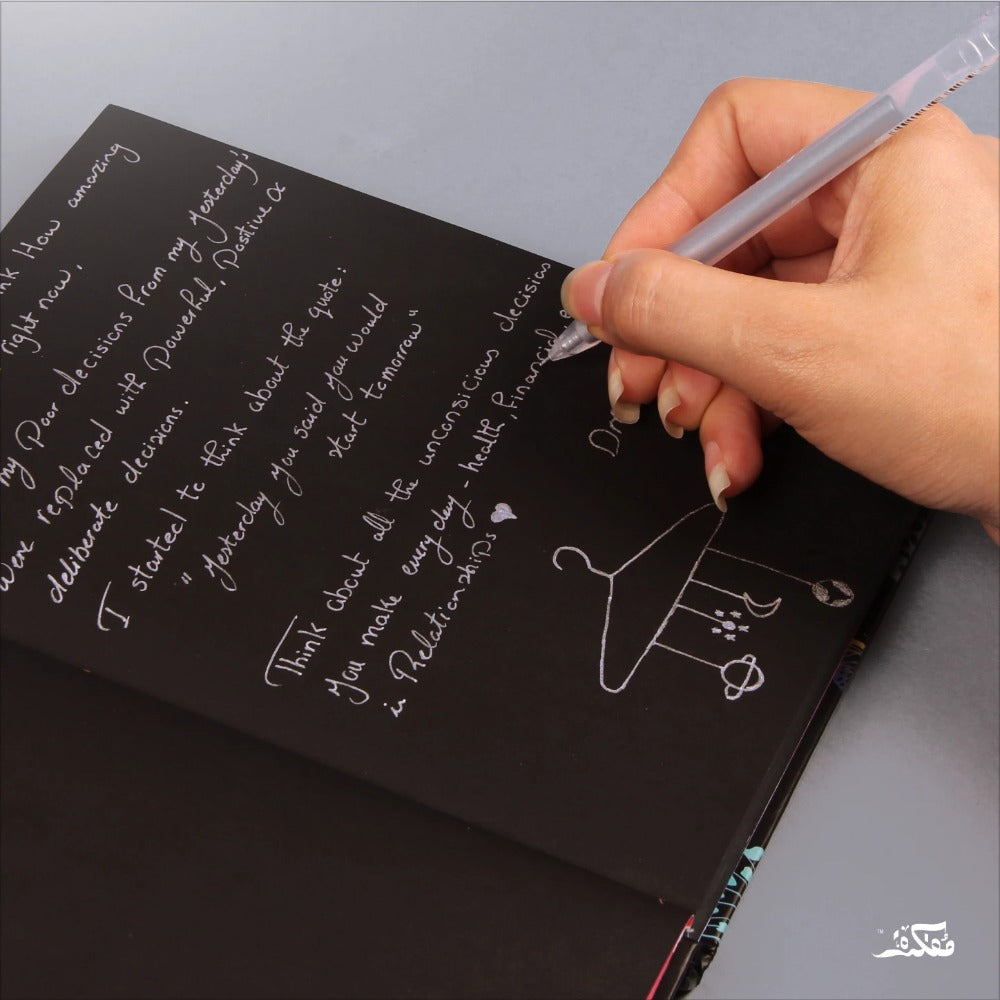 How amazing
right now.
my Poor decisions from my yesterday's
were replaced with Powerful, Positive
deliberate decisions.
I started to think about the quote:
"yesterday you said you would
start tomorrow"
Think about all the unconsicious decisions
you make everyday - health, financial
is Relationships
مفكرة
TM